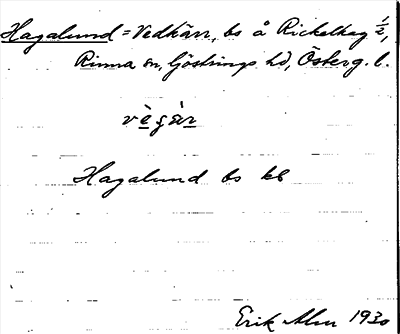 Hagalund = Vedkärr, bs å Rickelhag ½,
Rinna sn, Göstrings hd, Österg. l.
vègàr
Hagalund bs kb
Erik Alm 1930